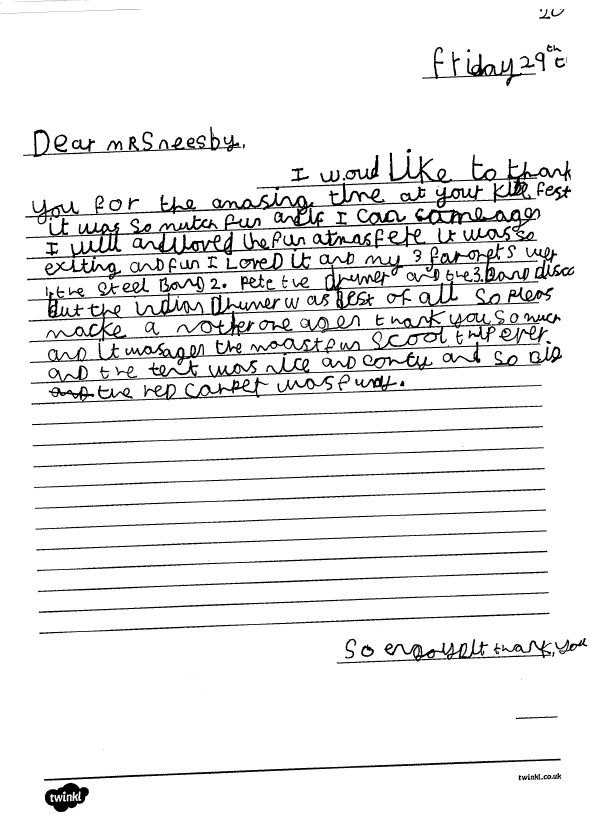 20
Friday 29th
Dear MRSneesby,
I woud Like to thank
you for the amasing time at your Kids fest
it was so mutch fun andif I can came agen
I will and loved the fun atmasfere it was so
exiting and fun I Loved it and my 3 favorets wer
1 the Steel Band 2. Pete the Drumer and the 3. Band disco
But the indian Drumer was Best of all so pleas
macke a nother one agen thank you so much
and it was agen the moast fun scool trip ever.
and the tent was nice and comfy and so Big
and the red carpet was fundy.
So enjoyelt thank, you
twinkl
twinkl.co.uk